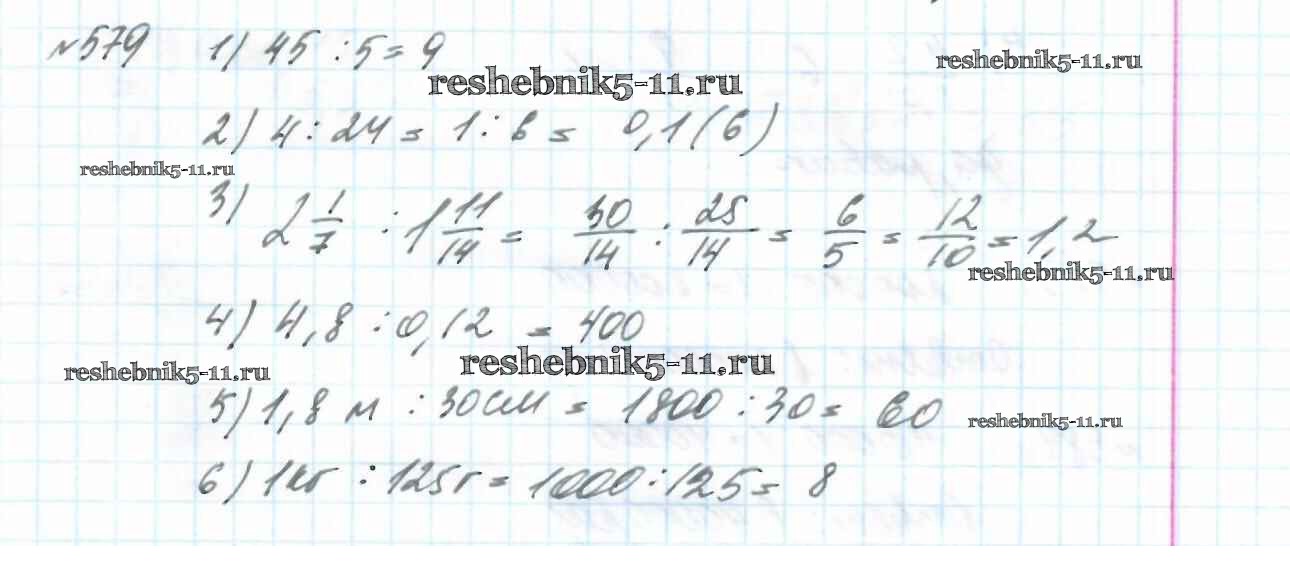 №579 1) 45 : 5 = 9
reshebnik5-11.ru
reshebnik5-11.ru
2) 4 : 24 = 1 : 6 = 0,1(6)
reshebnik5-11.ru
3) 2 1/7 : 1 11/14 = 30/14 : 25/14 = 6/5 = 12/10 = 1,2
reshebnik5-11.ru
4) 4,8 : 0,12 = 400
reshebnik5-11.ru
reshebnik5-11.ru
5) 1,8 м : 30см = 1800 : 30 = 60
reshebnik5-11.ru
6) 1кг : 125г = 1000 : 125 = 8